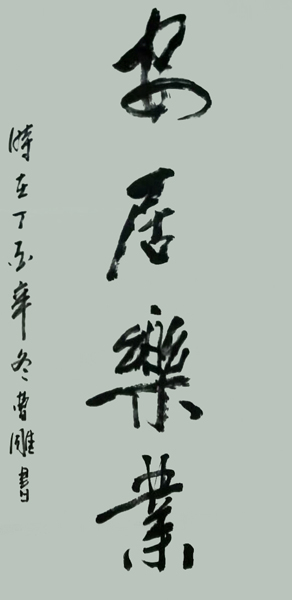 安居樂業
時在丁亥年冬曹雕書